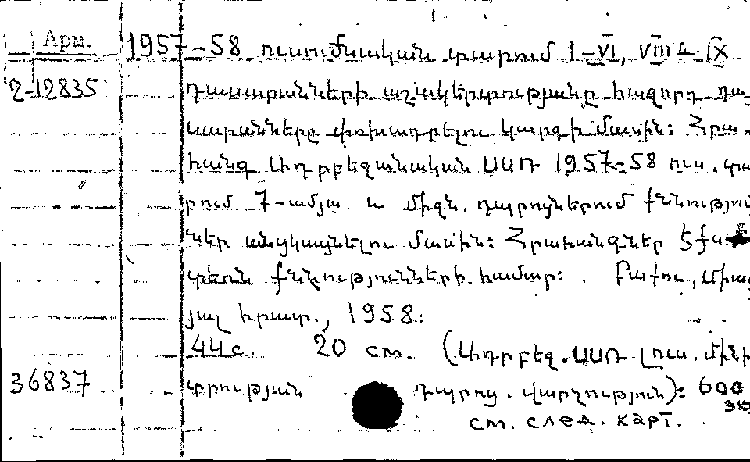 Арм. 1957-58 ուսումնական տարում I-VI, VIII և IX
2-12835 դասարանների աշակերտությանը հաջորդ դա-
սարանները փոխադրելու կարգի մասին: Հրա-
հանգ Ադրբեջանական ՍՍՌ 1957-58 ուս. տա
րում 7-ամյա և միջն. դպրոցներում քննություն
ներ անցկացնելու մասին: Հրահանգներ
պետական քննությունների համար: Բաքու, Միաց
յալ հրատ., 1958:
44 с. 20 см. (Ադրբեջ. ՍՍՌ Լուս. մինի
36837 տրության Դպրոց. վարչություն): 600
см. след. карт.